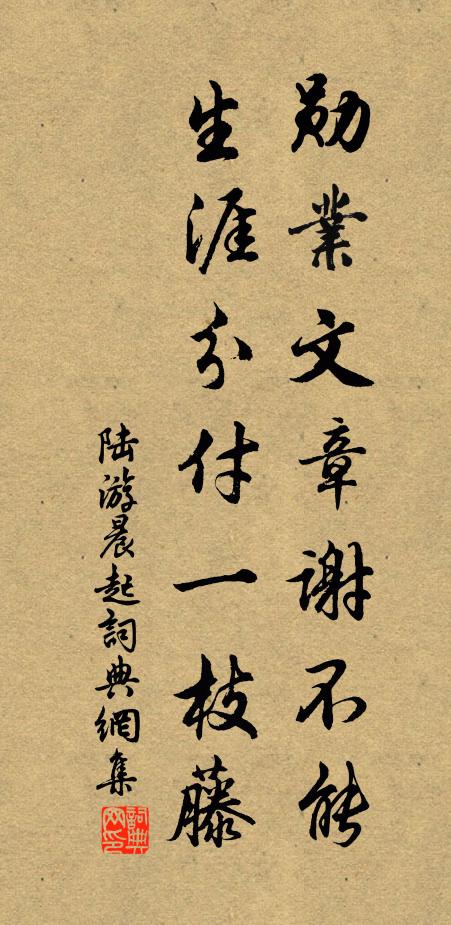 勋業文章谢不能
生涯分付一枝藤
陆游晨起詞典網集
詞典网印